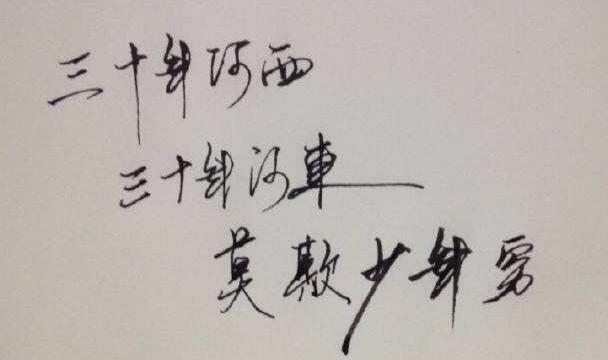 三十年河西
三十年河東
莫欺少年穷